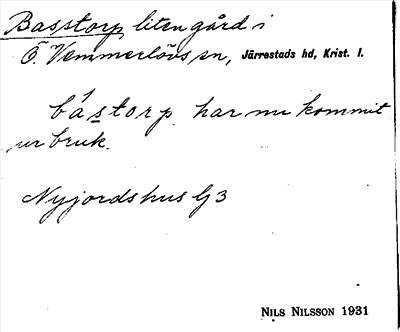 Basstorp, liten gård i
Ö. Vemmerlövs sn, Järrestads hd, Krist. l.
bástorp. har nu kommit
ur bruk.
Nyjordshus G3
NILS NILSSON 1931